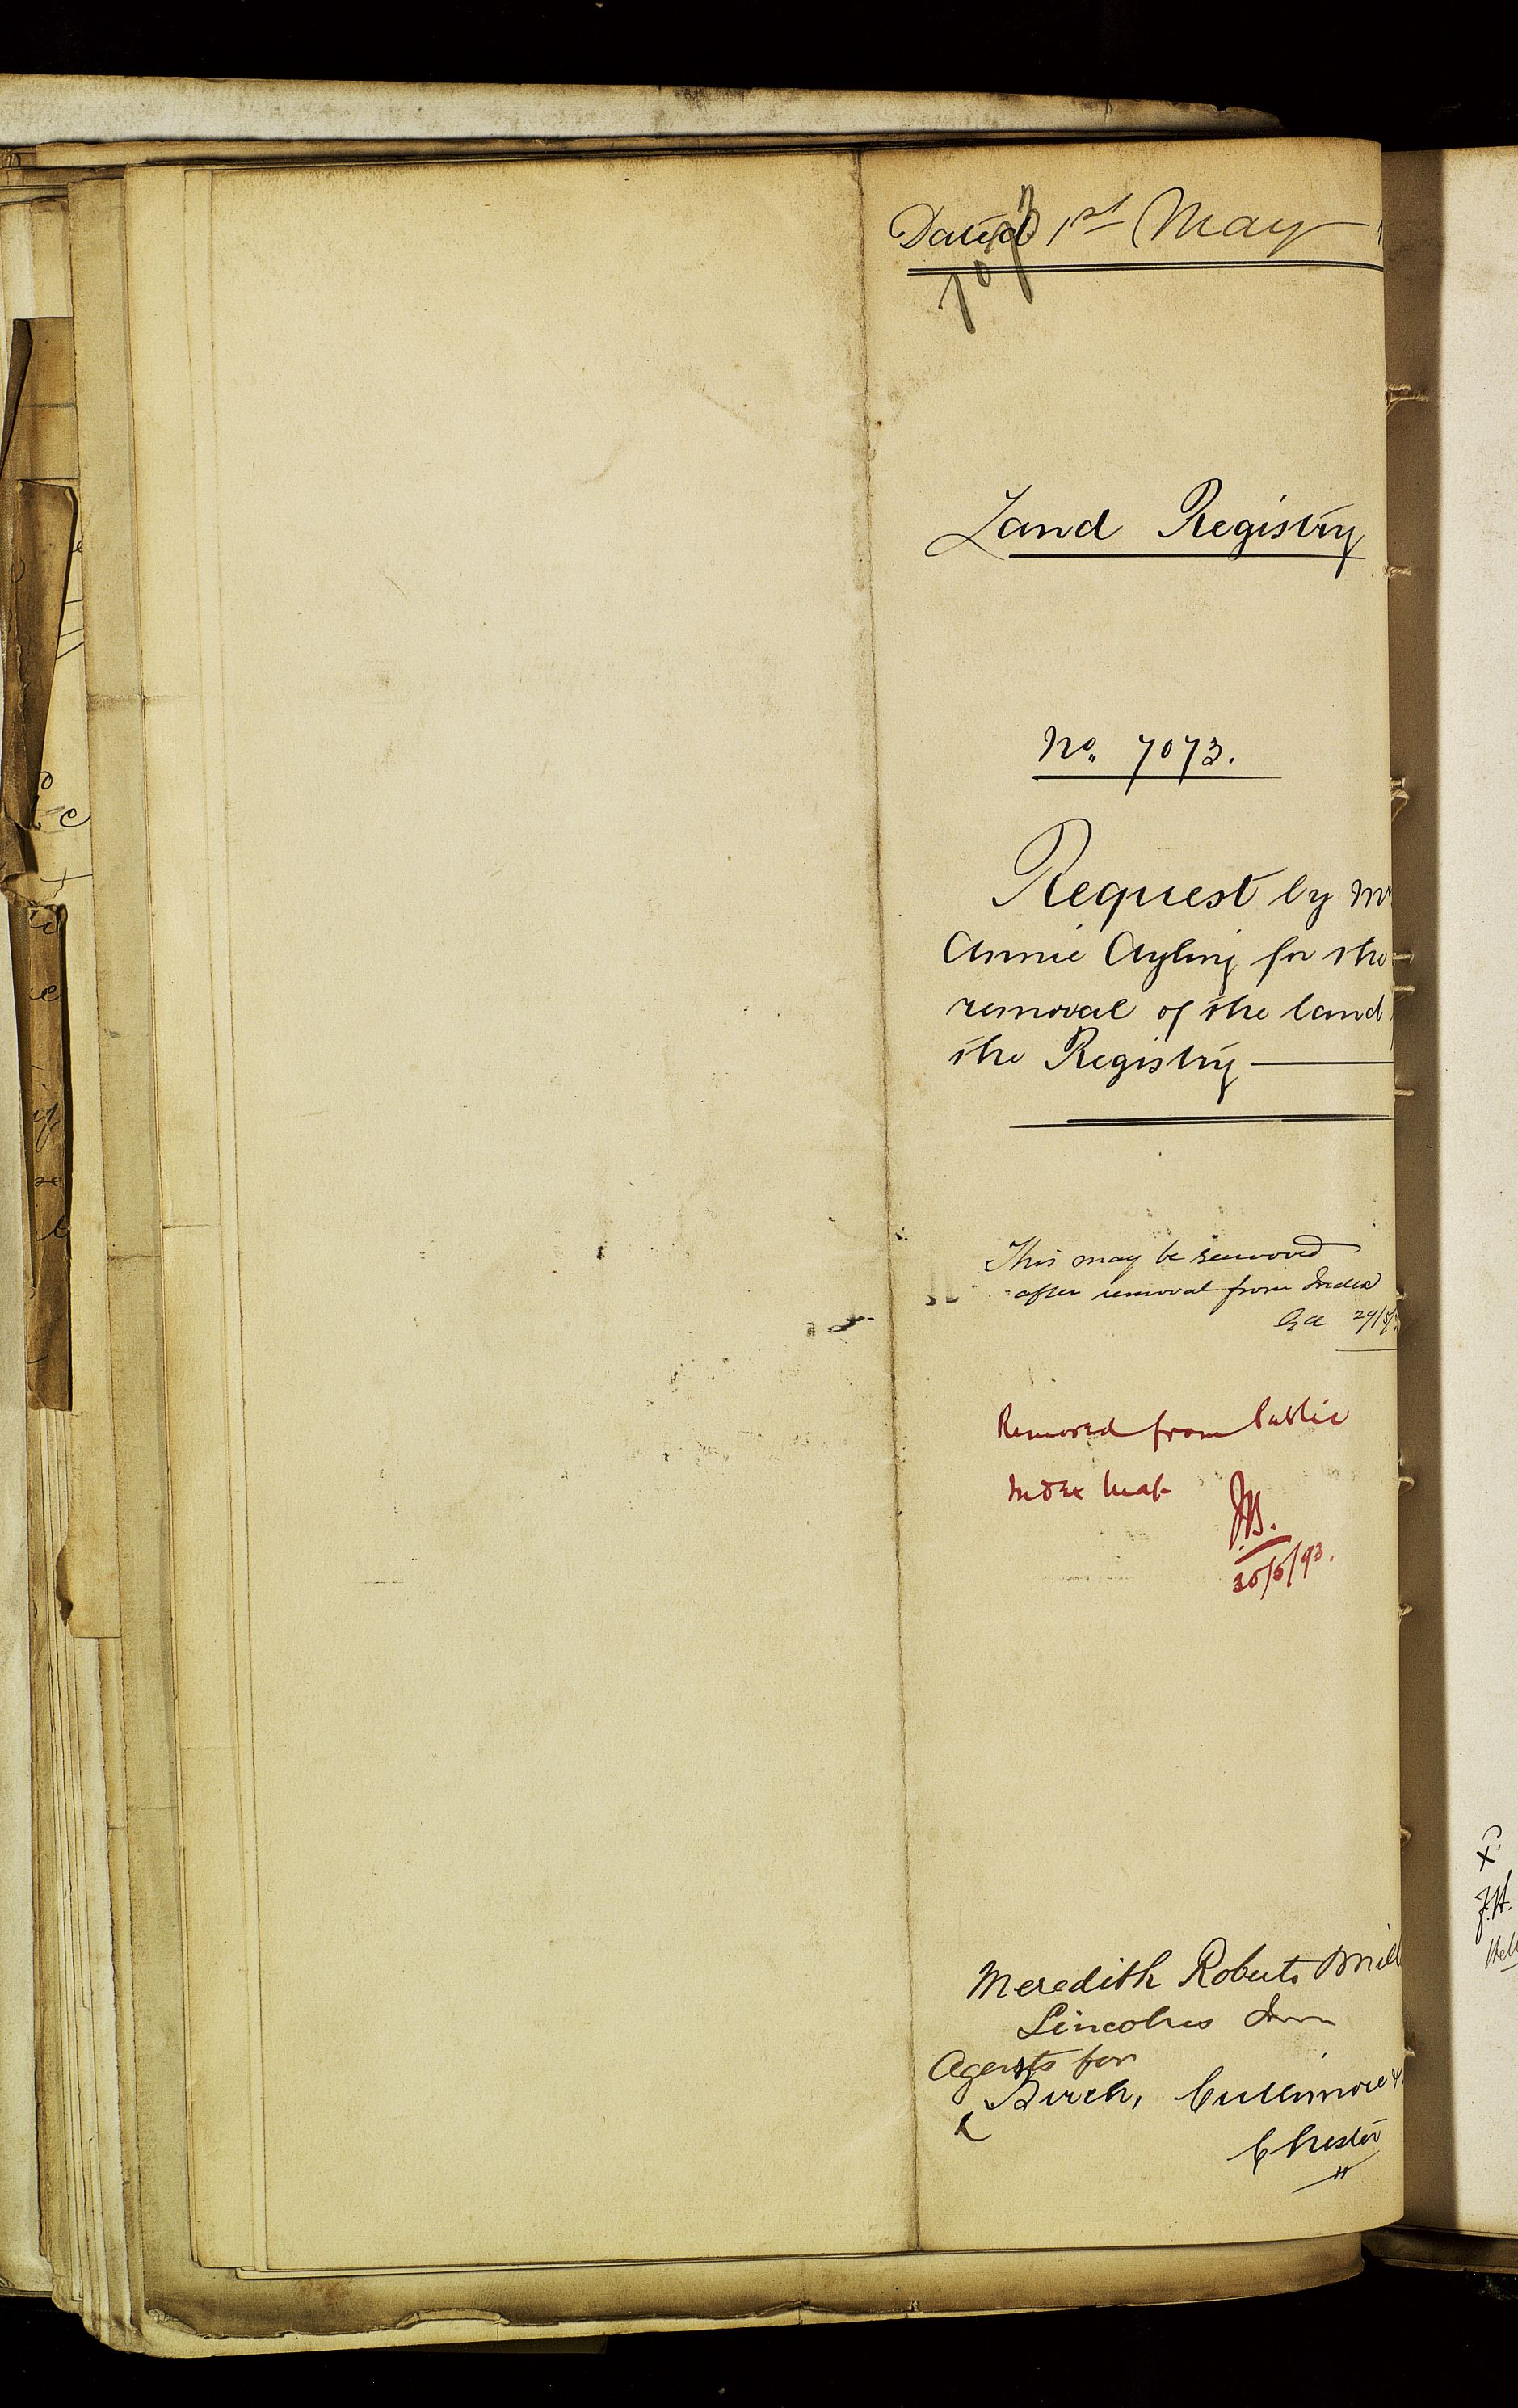 Dated 1st May
7073
Land Registry
No. 7073.
Request by M
Annie Ayling for the
removal of the land
the Registry
This may be removed
after removal from Index
GA 29/5/
Removed from Public
Index Map
JB.
30/5/93.
Meredith Roberts Mill
Lincolns Inn
Agents for
Birch, Cullimore &
Chester